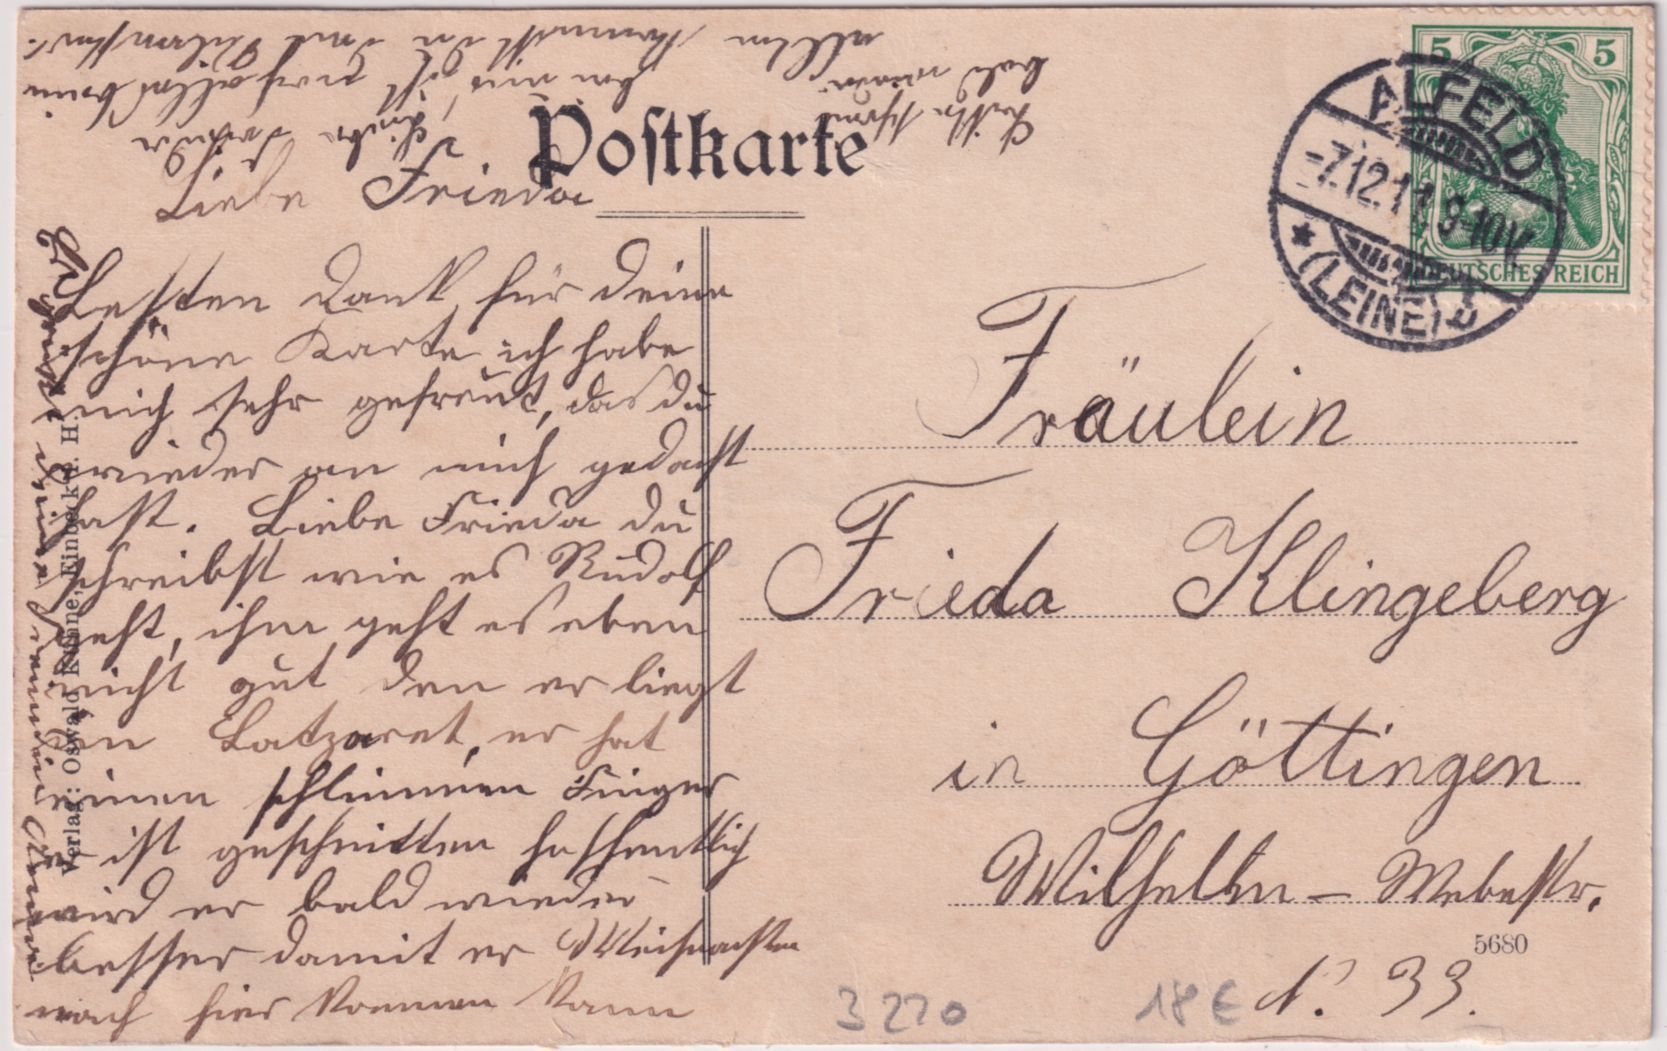 Postkarte
Liebe Frieda
Besten Dank für deine
schöne Karte ich habe
mich sehr gefreut, das du
wieder an mich gedacht
hast. Liebe Frieda du
schreibst wie es Rudolf
geht, ihm geht es eben
nicht gut den er liegt
in Latzaret, er hat
einen schlimmen Finger
er ist geschnitten hoffentlich
wird er bald wieder
besser damit er Weihnachten
nach hier kommen kann
Es grüßt deine Freundin
bald wieder
Verlag: Oswald Kühne, Einbeck i. H.
ALFELD
-7.12.11. 9-10V.
* (LEINE) b
5 5
DEUTSCHES REICH
Fräulein
Frieda Klingeberg
in Göttingen
Wilhelm-Weberstr.
5680
N: 33.
3220
18€